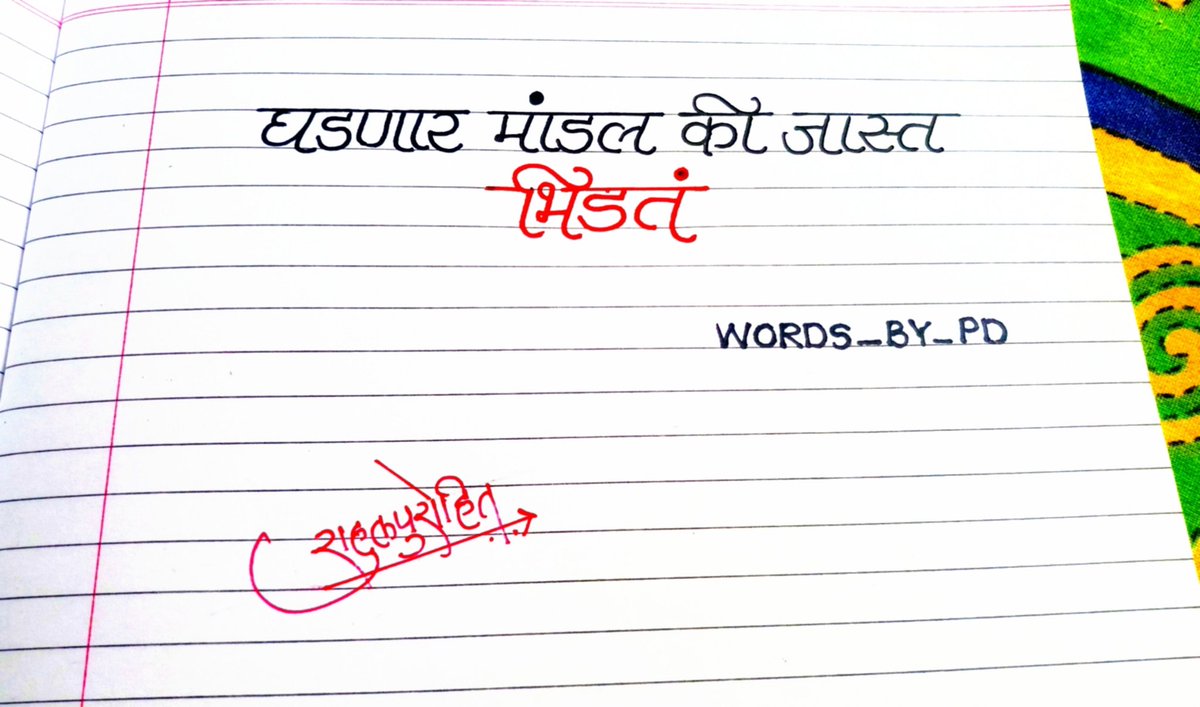 घडणार मांडल की जास्त
भिडतं
WORDS_BY_PD
राहुलपुरोहित